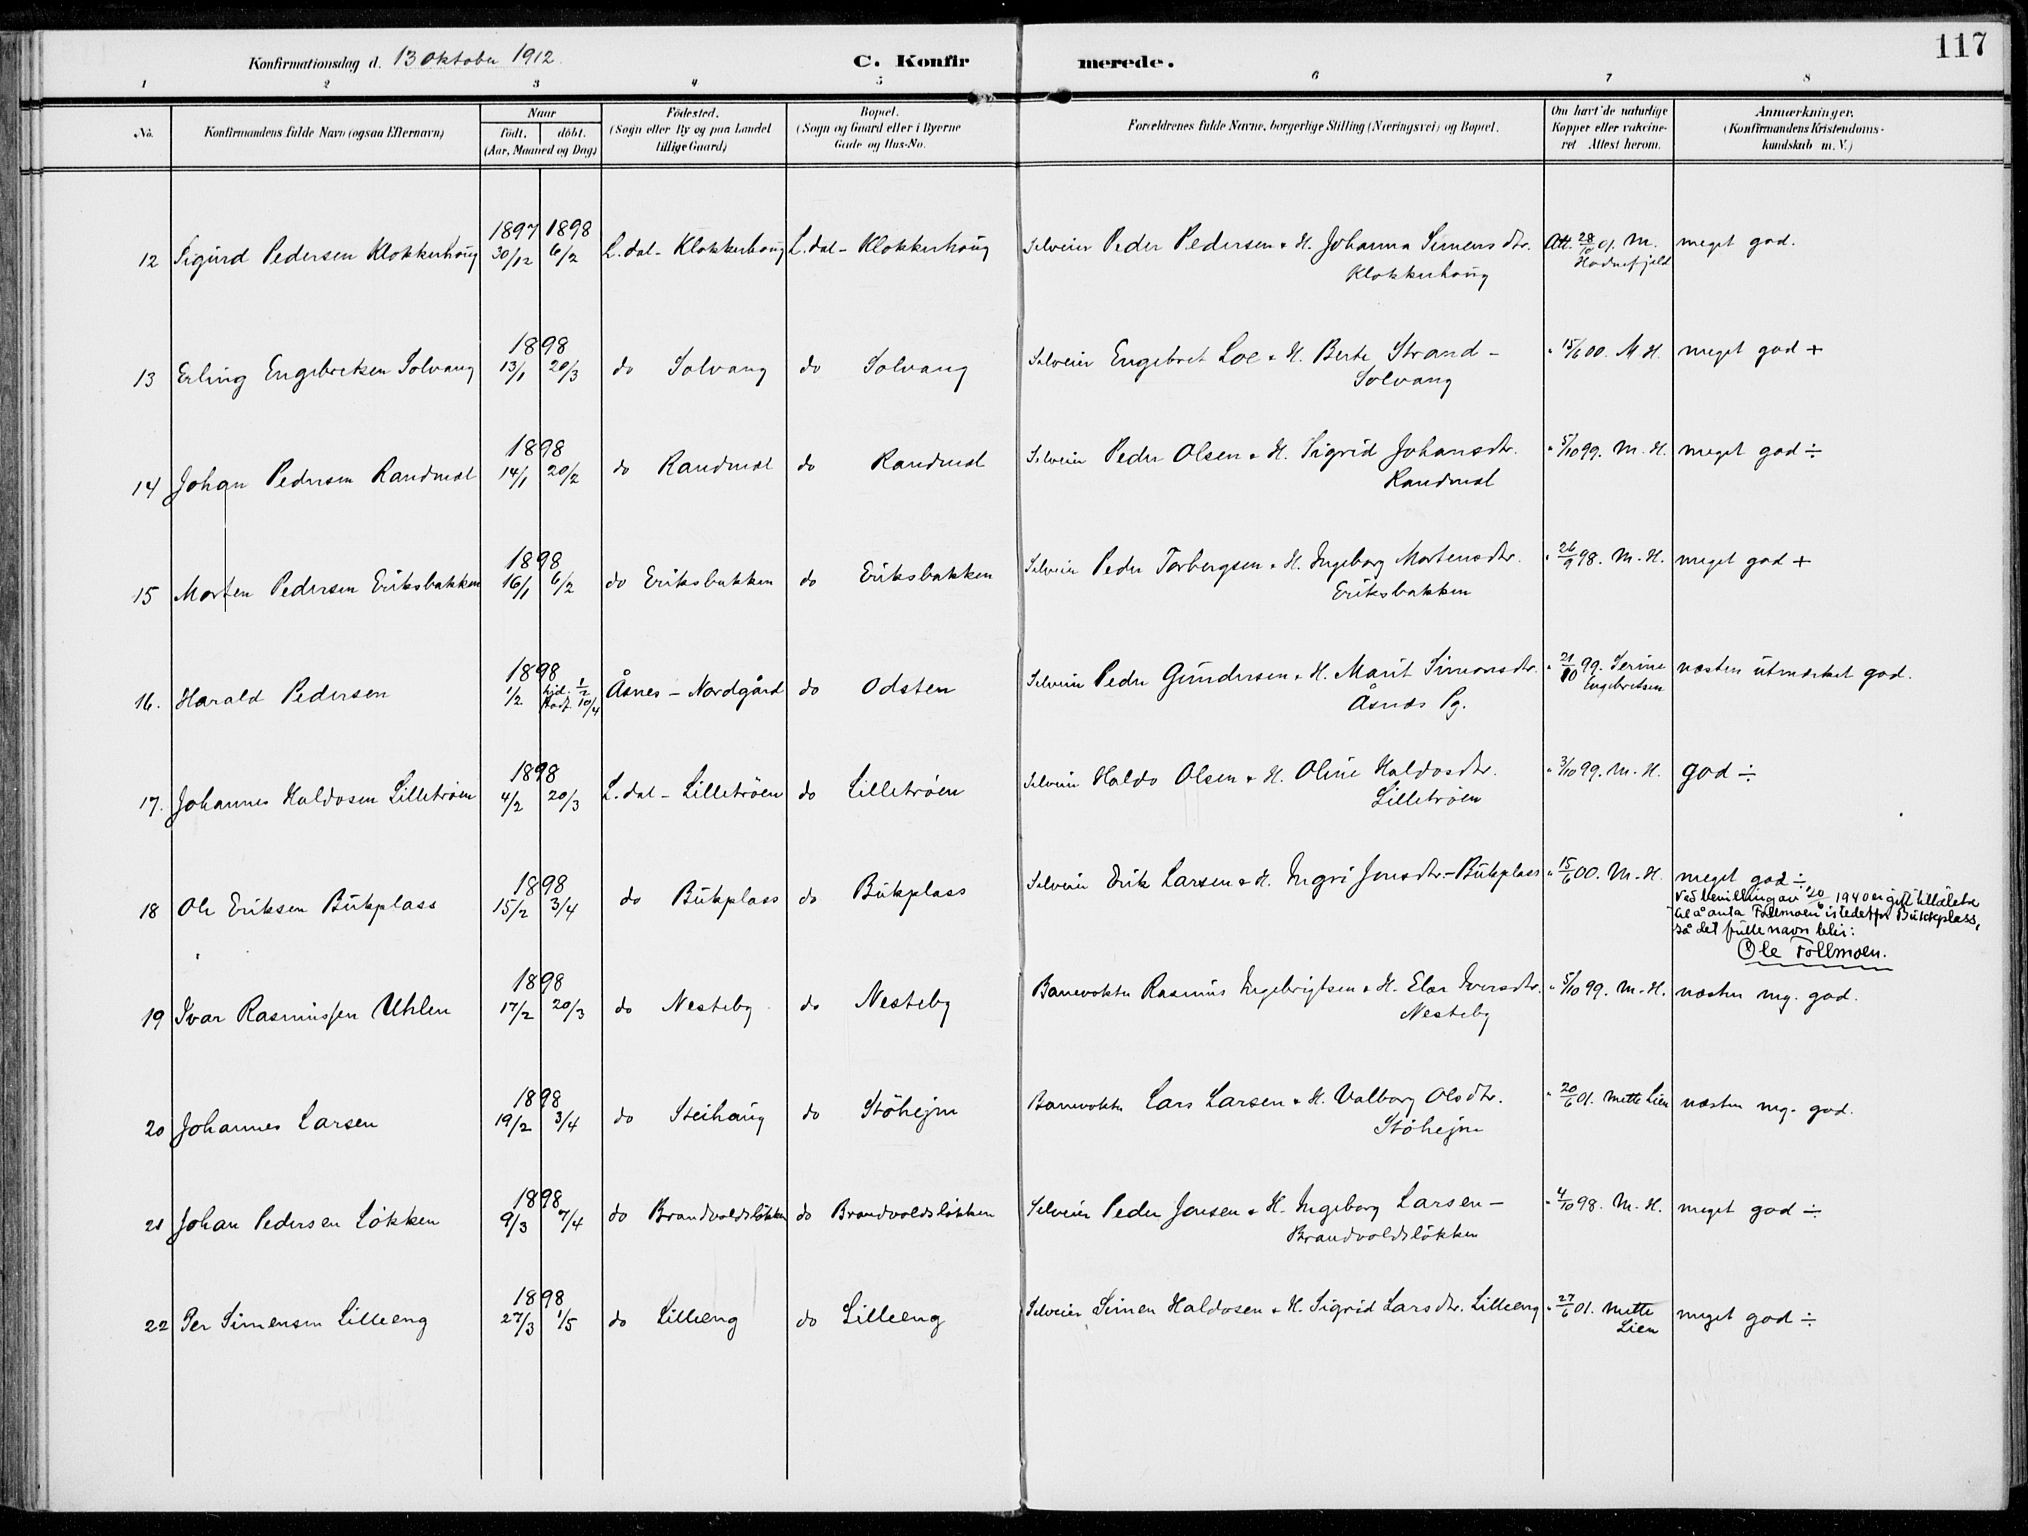 Konfirmationsdag d. 13 Oktober 1912. C. Konfirmerede. 117
1 2 3 4 5 6 7 8
No. Konfirmandens fulde Navn (ogsaa Efternavn) Naar født. døbt. (Aar, Maaned og Dag) Fødested. (Sogn eller By og paa Landet tillige Gaard) Bopæl. (Sogn og Gaard eller i Byerne Gade og Hus-No. Forældrenes fulde Navne, borgerlige Stilling (Næringsvei) og Bopæl. Om havt de naturlige Kopper eller vakcineret Attest herom. Anmærkninger. (Konfirmandens Kristendomskundskab m. V.)
1897 1898
12 Sigurd Pedersen Klokkerhoug 30/12 6/2 L.dal - Klokkerhoug L.dal - Klokkerhoug Selveier Peder Pedersen & H. Johanna Simensdtr. Att. 28/10 01. M. meget god.
Klokkerhoug Hodnefjeld
1898
13 Erling Engebretsen Solvang 13/1 20/3 do Solvang do Solvang Selveier Engebret Loe & H. Berte Strand - " 15/6 00. M. H. meget god +
Solvang
1898
14 Johan Pedersen Randmæl 14/1 20/2 do Randmæl do Randmæl Selveier Peder Olsen & H. Sigrid Johansdtr. " 5/10 99. M. H. meget god ÷
Randmæl
1898
15 Morten Pedersen Eriksbakken 16/1 6/2 do Eriksbakken do Eriksbakken Selveier Peder Torbergsen & H. Ingeborg Mortensdtr. " 26/9 98. M. H. meget god +
Eriksbakken
1898
16. Harald Pedersen 1/2 hjd. 1/2 Stadf. 10/4 Åsnes - Nordgård do Odsten Selveier Peder Gundersen & H. Marit Simonsdtr. " 21/10 99. Serine Engebretsen næsten utmærket god.
Åsnes Pg.
1898
17. Johannes Haldosen Lilletrøen 4/2 20/3 L.dal - Lilletrøen do Lilletrøen Selveier Haldo Olsen & H. Oline Haldosdtr. " 3/10 99. M. H. god ÷
Lilletrøen
1898
18 Ole Eriksen Bukplass 15/2 3/4 do Bukplass do Bukplass Selveier Erik Larsen & H. Ingri Jonsdtr. - Bukplass " 15/6 00. M. H. meget god ÷
Ved bevilling av 20/6 1940 er gitt tillatelse
til å anta Tollmoen istedetfor Bukkplass,
så det fulle navn blir:
Ole Tollmoen.
1898
19 Ivar Rasmussen Uhlen 17/2 20/3 do Nesteby do Nesteby Banevokter Rasmus Ingebrigtsen & H. Elæ Iversdtr. " 5/10 99. M. H. næsten mg. god.
Nesteby
1898
20 Johannes Larsen 19/2 3/4 do Steihaug do Støhejm Banevokter Lars Larsen & H. Valborg Olsdtr. " 20/6 01. Mette Lien næsten mg. god.
Støhejm
1898
21 Johan Pedersen Løkken 9/3 7/4 do Brandvoldsløkken do Brandvoldsløkken Selveier Peder Jonsen & H. Ingeborg Larsen - " 4/10 98. M. H. meget god ÷
Brandvoldsløkken
1898
22 Per Simensen Lilleeng 27/3 1/5 do Lilleeng do Lilleeng Selveier Simen Haldosen & H. Sigrid Larsdtr. Lilleeng " 27/6 01. Mette Lien meget god ÷